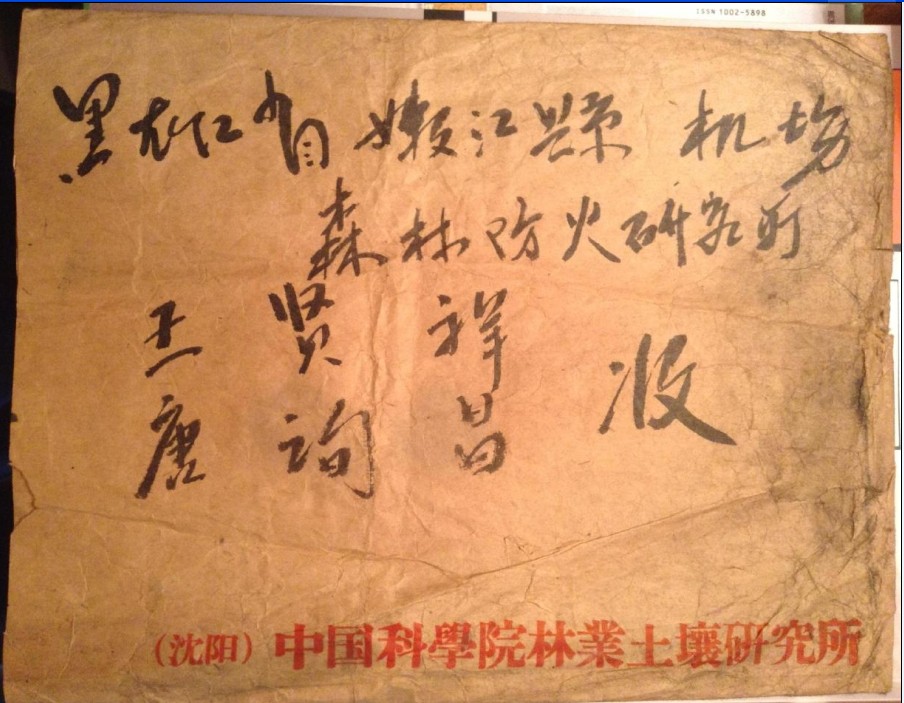 ISSN 1002-5898
黑龙江省 嫩江县 机场
森林防火研究所
王 贤 祥
唐 询 昌 收
(沈阳) 中国科學院林業土壤研究所